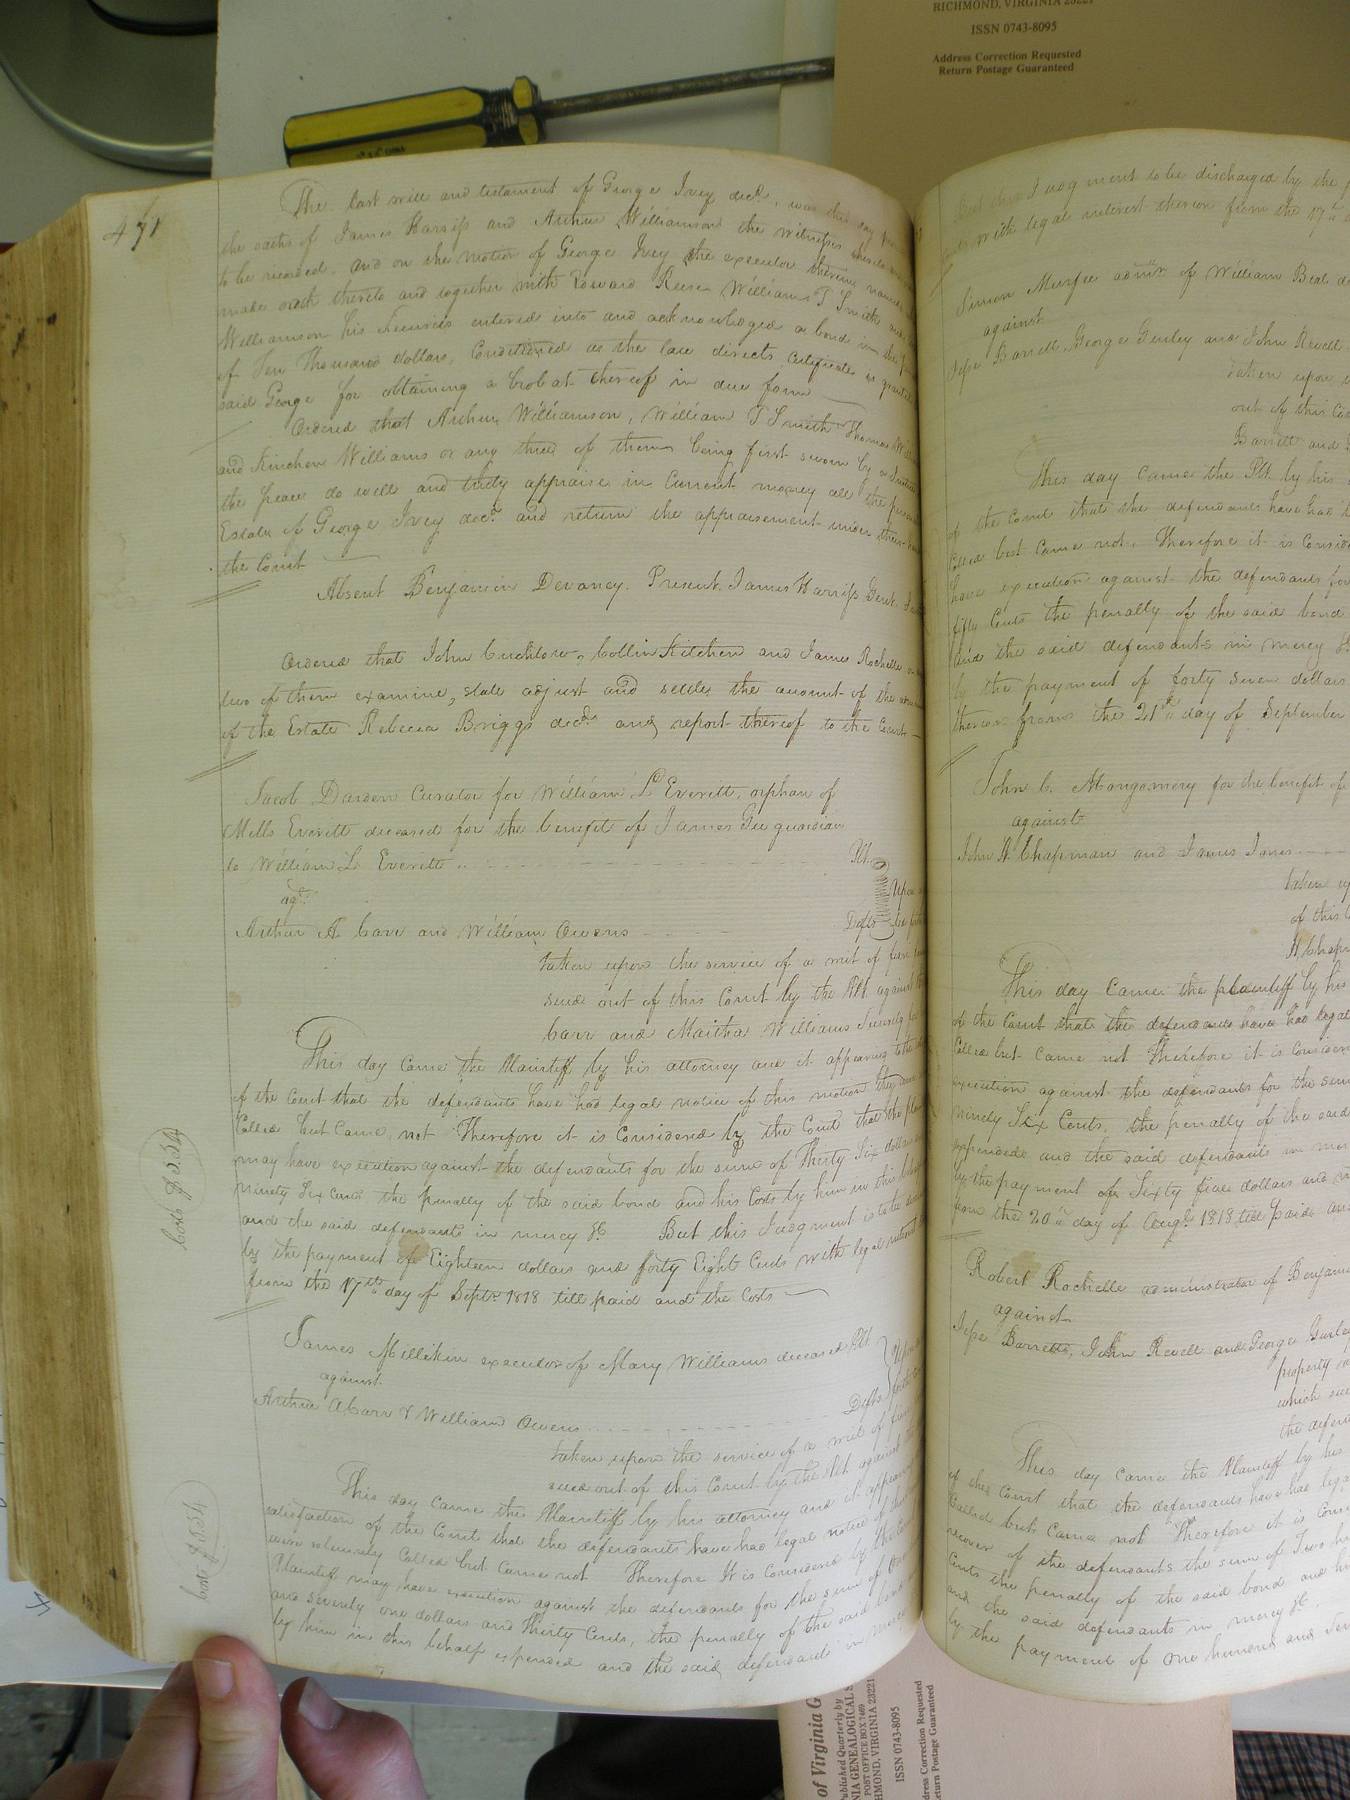 RICHMOND, VIRGINIA 23221
ISSN 0743-8095
Address Correction Requested
Return Postage Guaranteed
471
The last will and testament of George Ivey decd, was this day
the oaths of James Harriss and Arthur Williamson the witnesses thereto
to be recorded. and on the motion of George Ivey the executor therein named
made oath thereto and together with Edward Reese Williams T Smith and
Williamson his Securities entered into and acknowledged a bond in the
of Ten Thousand dollars, Conditioned as the law directs Certificate is granted
said George for obtaining a probat thereof in due form
Ordered that Arthur Williamson, William T Smith Thomas
and Kinchen Williams or any three of them being first sworn by a Justice
the peace do well and truly appraise in Current money all the
Estate of George Ivey decd. and return the appraisement under their
the Court
Absent Benjamin Devaney. Present. James Harriss Gent.
Ordered that John Crichlow, Collin Kitchen and James Rochelle
two of them examine, state adjust and settle the amount of the
of the Estate Rebecca Briggs decd. and report thereof to the Court
Jacob Darden Curator for William L Everitt, orphan of
Mills Everitt deceased for the benefit of James Gee guardian
to William L. Everitt Plt.
agt. Upon
Arthur A. Carr and William Owens Defts
taken upon the service of a writ of
sued out of this Court by the Plt against
Carr and Martha Williams Security
This day came the Plaintiff by his attorney and it appearing to the
of the Court that the defendants have had legal notice of this motion they
Called but came not Therefore it is Considered by the Court that the
may have execution against the defendants for the sum of Thirty Six dollars
ninety Six Cents the penalty of the said bond and his Costs by him in this behalf
and the said defendants in mercy &c But this Judgment is to be
by the payment of Eighteen dollars and forty Eight Cents with legal interest
from the 17th day of Septr. 1818 till paid and the Costs
Costs $5.54
James Milliken executor of Mary Williams deceased Plt.
against. Upon
Arthur A Carr & William Owens Defts
taken upon the service of a writ of
sued out of this Court by the Plt against
This day came the Plaintiff by his attorney and it appearing
satisfaction of the Court that the defendants have had legal notice of
were solemnly Called but Came not Therefore It is Considered by the Court
Plaintiff may have execution against the defendants for the sum of One
and seventy one dollars and Thirty Cents, the penalty of the said bond
by him in this behalf expended and the said defendants in mercy
Costs $5.54
But this Judgment to be discharged by the
with legal interest thereon from the 17th
Simon Murfee admr. of William Beal
against
Jesse Barrett, George Gurley and John Revell
taken upon
out of this
Barrett and
This day came the Plt by his
of the Court that the defendants have had
Called but Came not. Therefore it is
have execution against the defendants for
fifty Cents the penalty of the said bond
and the said defendants in mercy &c
by the payment of forty seven dollars
thereon from the 21st day of September
John C. Montgomery for the benefit of
against
John A Chapman and James Jones
taken
of this
A Chap
This day came the plaintiff by his
of the Court that the defendants have had legal
Called but came not Therefore it is
execution against the defendants for the sum
ninety Six Cents, the penalty of the said
expended and the said defendants in
by the payment of Sixty five dollars and
from the 20th day of Augt. 1818 till paid and
Robert Rochelle administrator of Benjamin
against
Jesse Barrett, John Revell and George Gurley
property
which
the
This day came the Plaintiff by his
of this Court that the defendants have had legal
Called but Came not Therefore it is
recover of the defendants the sum of Two
Cents the penalty of the said bond and
and the said defendants in mercy &c.
by the payment of One hundred and
of Virginia G
Published Quarterly by
GENEALOGICAL
POST OFFICE BOX 7469
RICHMOND, VIRGINIA 23221
ISSN 0743-8095
Address Correction Requested
Return Postage Guaranteed